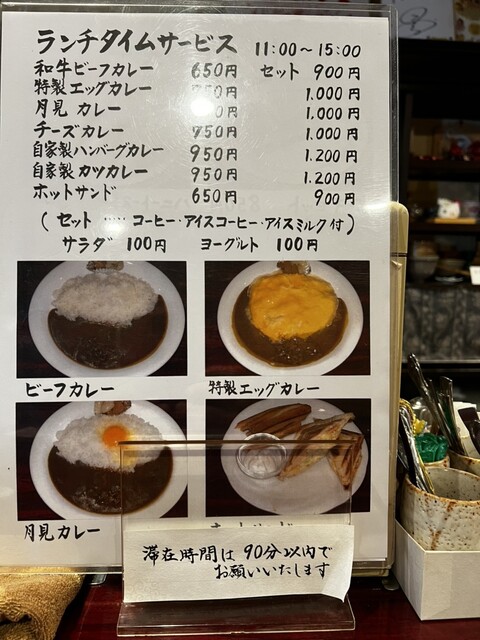 ランチタイムサービス 11:00〜15:00
和牛ビーフカレー 650円 セット 900円
特製エッグカレー 750円 1,000円
月見カレー 0円 1,000円
チーズカレー 750円 1,000円
自家製ハンバーグカレー 950円 1,200円
自家製カツカレー 950円 1,200円
ホットサンド 650円 900円
(セット・・・・コーヒー・アイスコーヒー・アイスミルク付)
サラダ 100円 ヨーグルト 100円
ビーフカレー 特製エッグカレー
月見カレー
滞在時間は90分以内で
お願いいたします